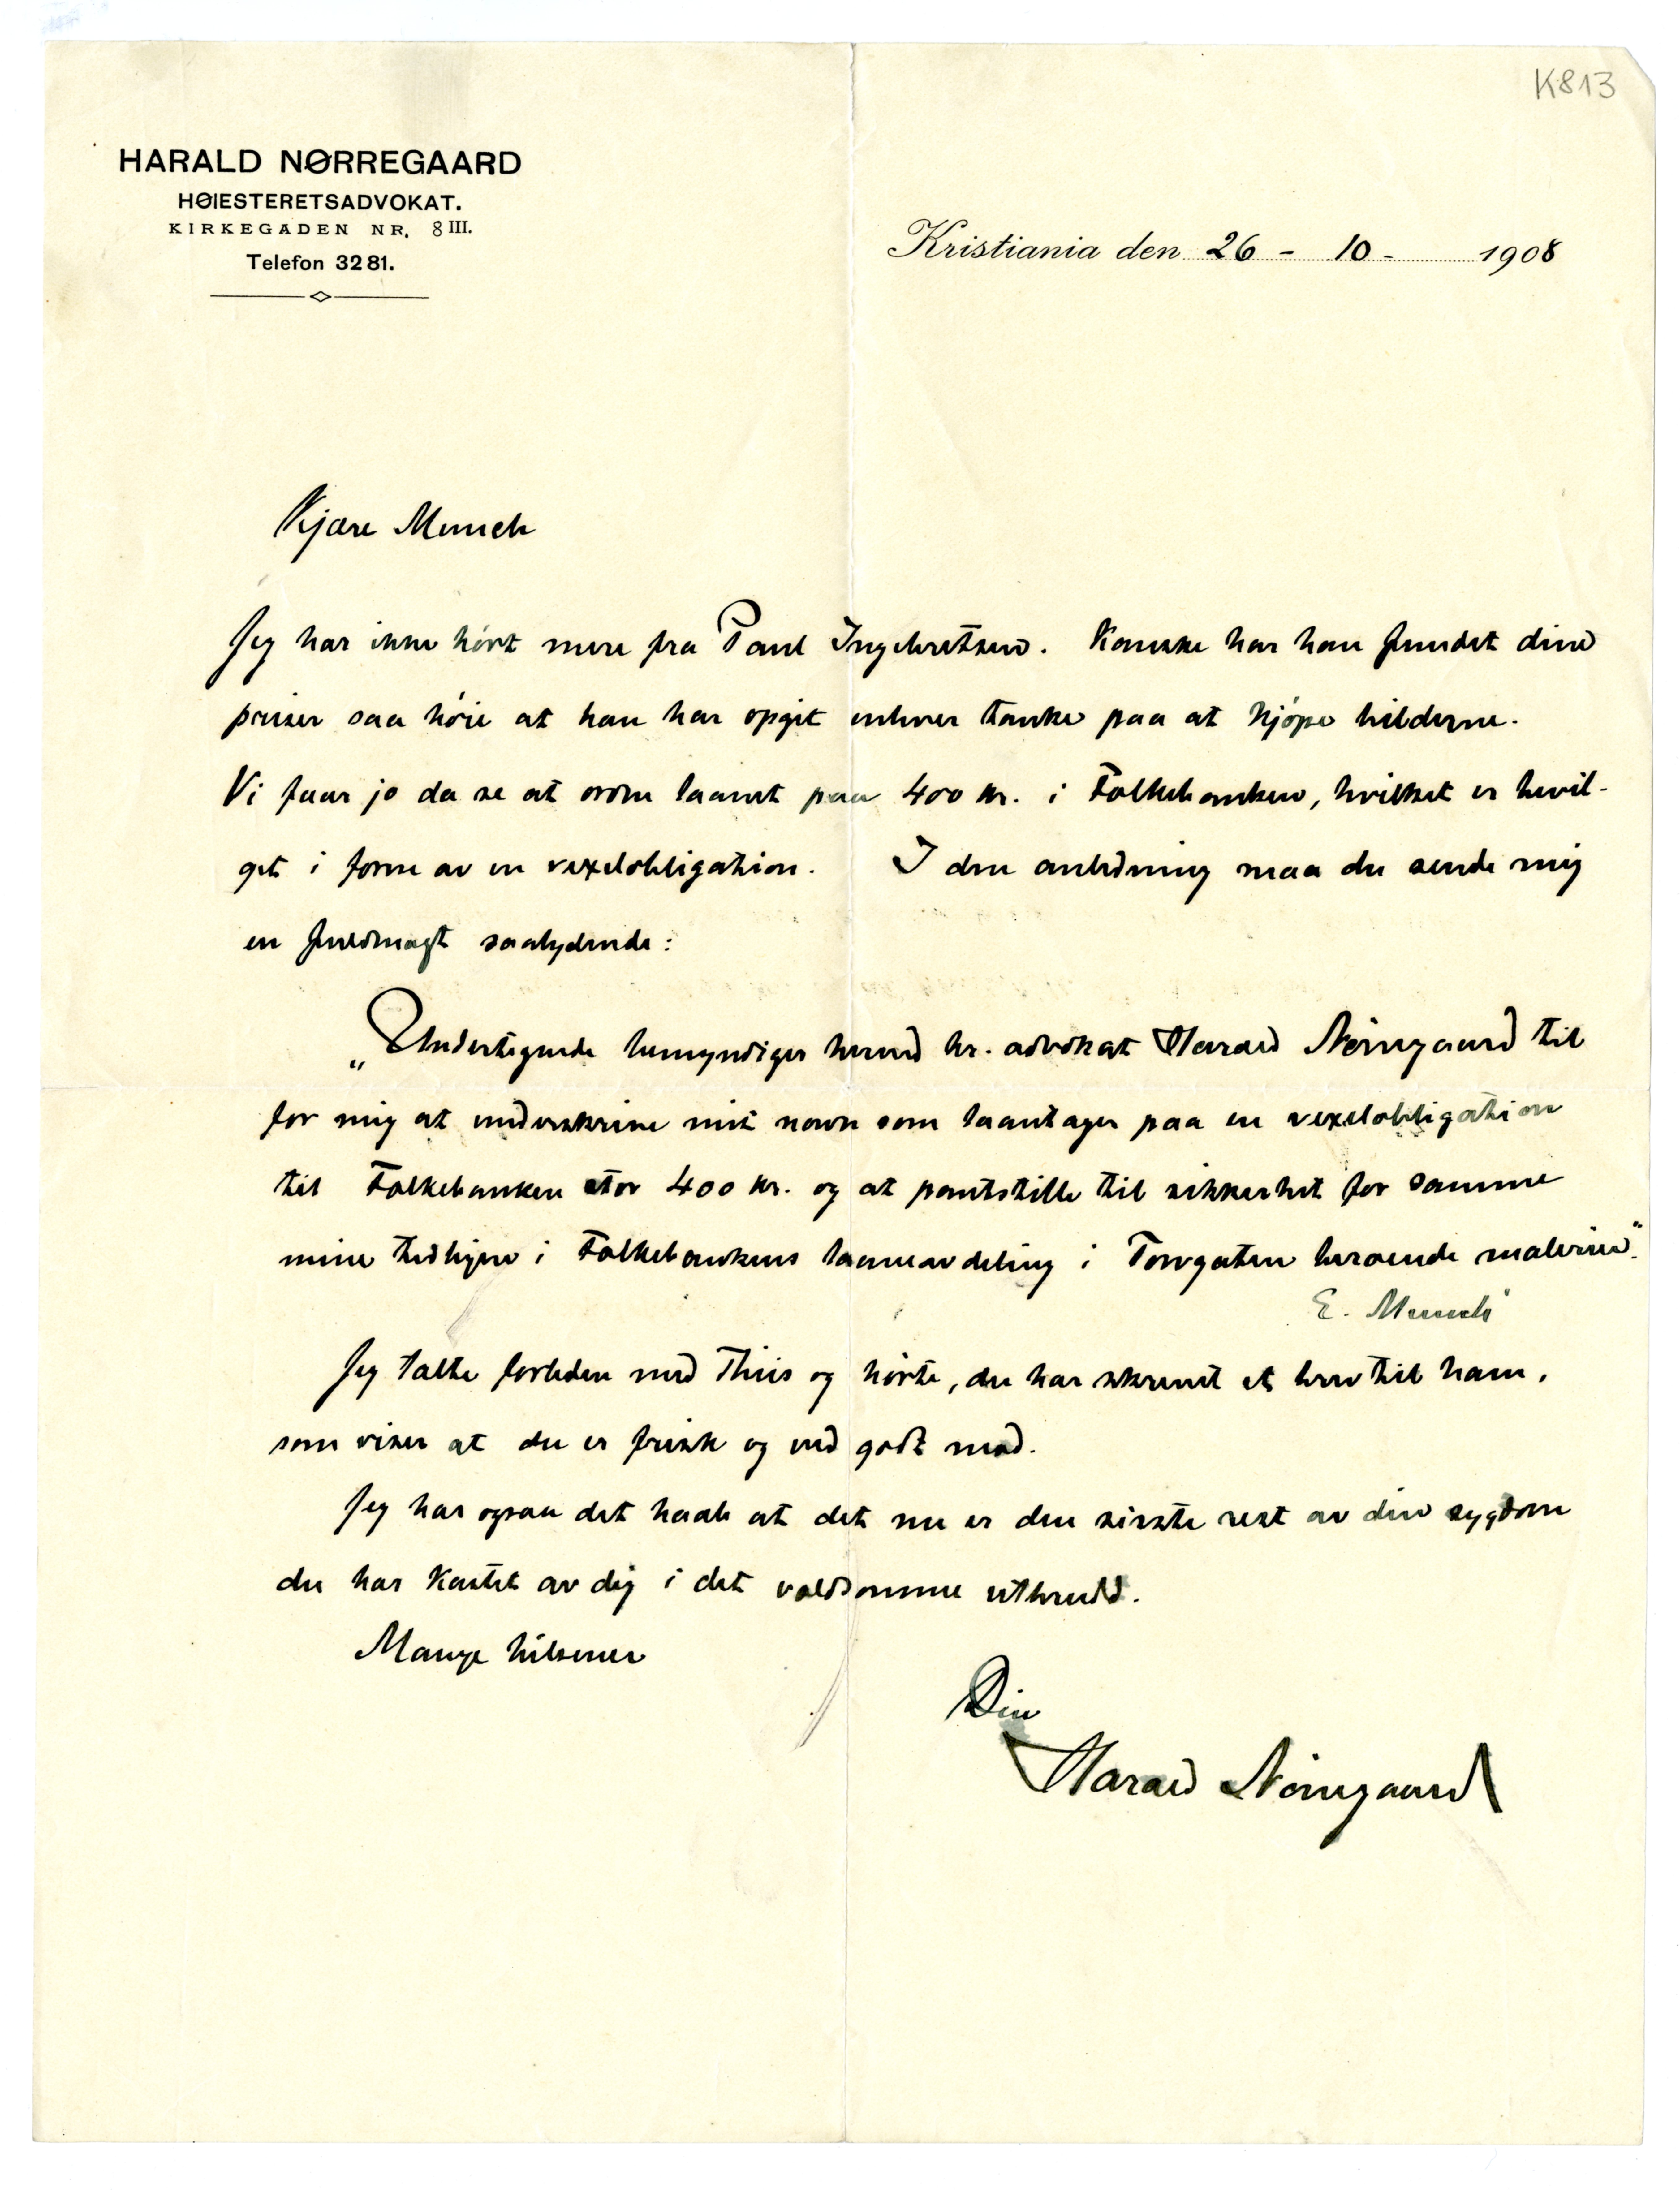 K813
HARALD NØRREGAARD
HØIESTERETSADVOKAT.
KIRKEGADEN NR. 8 III.
Telefon 3281.
Kristiania den 26 - 10 - 1908
Kjære Munch
Jeg har ikke hørt mere fra Paul Ingebretsen. Kanske har han fundet dine
priser saa høie at han har opgit enhver tanke paa at kjøpe bilderne.
Vi faar jo da se at ordne laanet paa 400 kr. i Folkebanken, hvilket er bevil-
get i form av en vexelobligation. I den anledning maa du sende mig
en fuldmagt saalydende:
„Undertegnede bemyndiger herved hr. advokat Harald Nørregaard til
for mig at underskrive mit navn som laantager paa en vexelobligation
til Folkebanken stor 400 kr. og at pantstille til sikkerhet for samme
mine tidligere i Folkebankens laaneavdeling i Torvgaten beroende malerier".
E. Munch"
Jeg talte forleden med Thiis og hørte, du har skrevet et brev til ham,
som viser at du er frisk og ved godt mod.
Jeg har ogsaa det haab at det nu er den sidste rest av din sygdom
du har kastet av dig i det voldsomme utbrudd.
Mange hilsener
Din
Harald Nørregaard